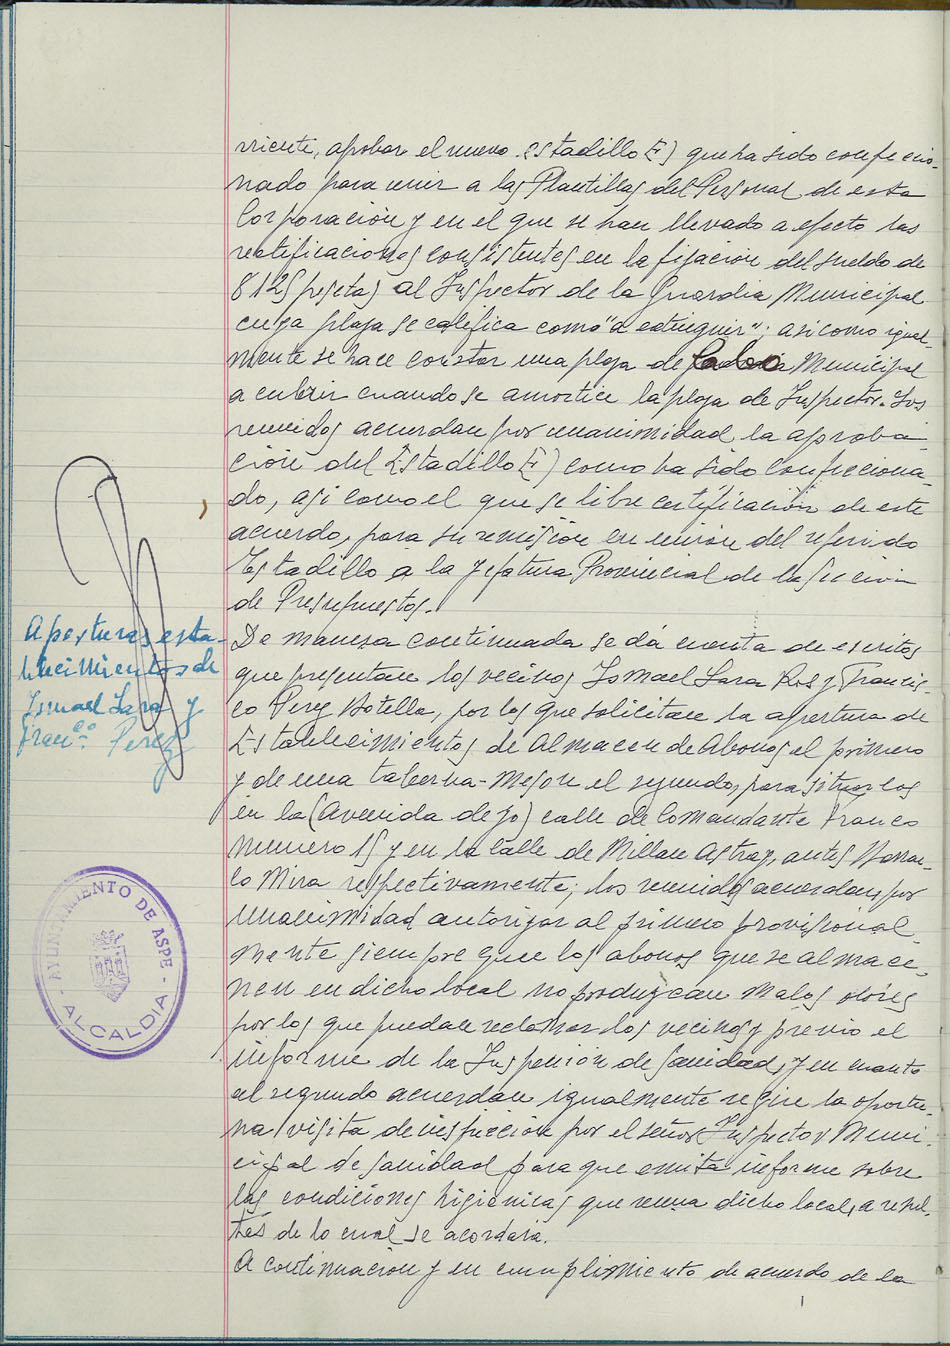 rriente, aprobar el nuevo estadillo E) que ha sido confeccio-
nado para unir a las Plantillas del Personal de esta
Corporación y en el que se han llevado a efecto las
rectificaciones consistentes en la fijacion del sueldo de
8125 pesetas al Inspector de la Guardia Municipal
cuya plaza se califica como "a extinguir"; asi como igual-
mente se hace constar una plaza de Cabo Municipal
a cubrir cuando se amortice la plaza de Inspector. Los
reunidos acuerdan por unanimidad la aproba-
ción del Estadillo E) como ha sido confecciona-
do, asi como el que se libre certificación de este
acuerdo, para su remisión en unión del referido
Estadillo a la Jefatura Provincial de la Seccion
de Presupuestos.
De manera continuada se dá cuenta de escritos
que presentan los vecinos Ismael Lara Ros y Francis-
co Perez Botella, por los que solicitan la apertura de
Establecimientos de Almacen de Abonos el primero
y de una taberna-meson el segundo, para situarlos
en la (Avenida de Jo) calle de Comandante Franco
numero 15 y en la Calle de Millan Astray, antes
lo Mira respectivamente; los reunidos acuerdan, por
unanimidad autorizar al primero provisional-
mente siempre que los abonos que se almace-
nen en dicho local no produzcan malos olores
por los que puedan reclamar los vecinos y previo el
informe de la Inspeccion de Sanidad, y en cuanto
al segundo acuerdan igualmente se gire la oportu-
na visita de inspección por el señor Inspector Muni-
cipal de Sanidad para que emita informe sobre
las condiciones higienicas que reuna dicho local, a resul-
tas de lo cual se acordará.
A continuación y en cumplimiento de acuerdo de la
Aperturas esta-
blecimientos de
Ismael Lara y
Franco. Perez
AYUNTAMIENTO DE ASPE
- ALCALDIA -